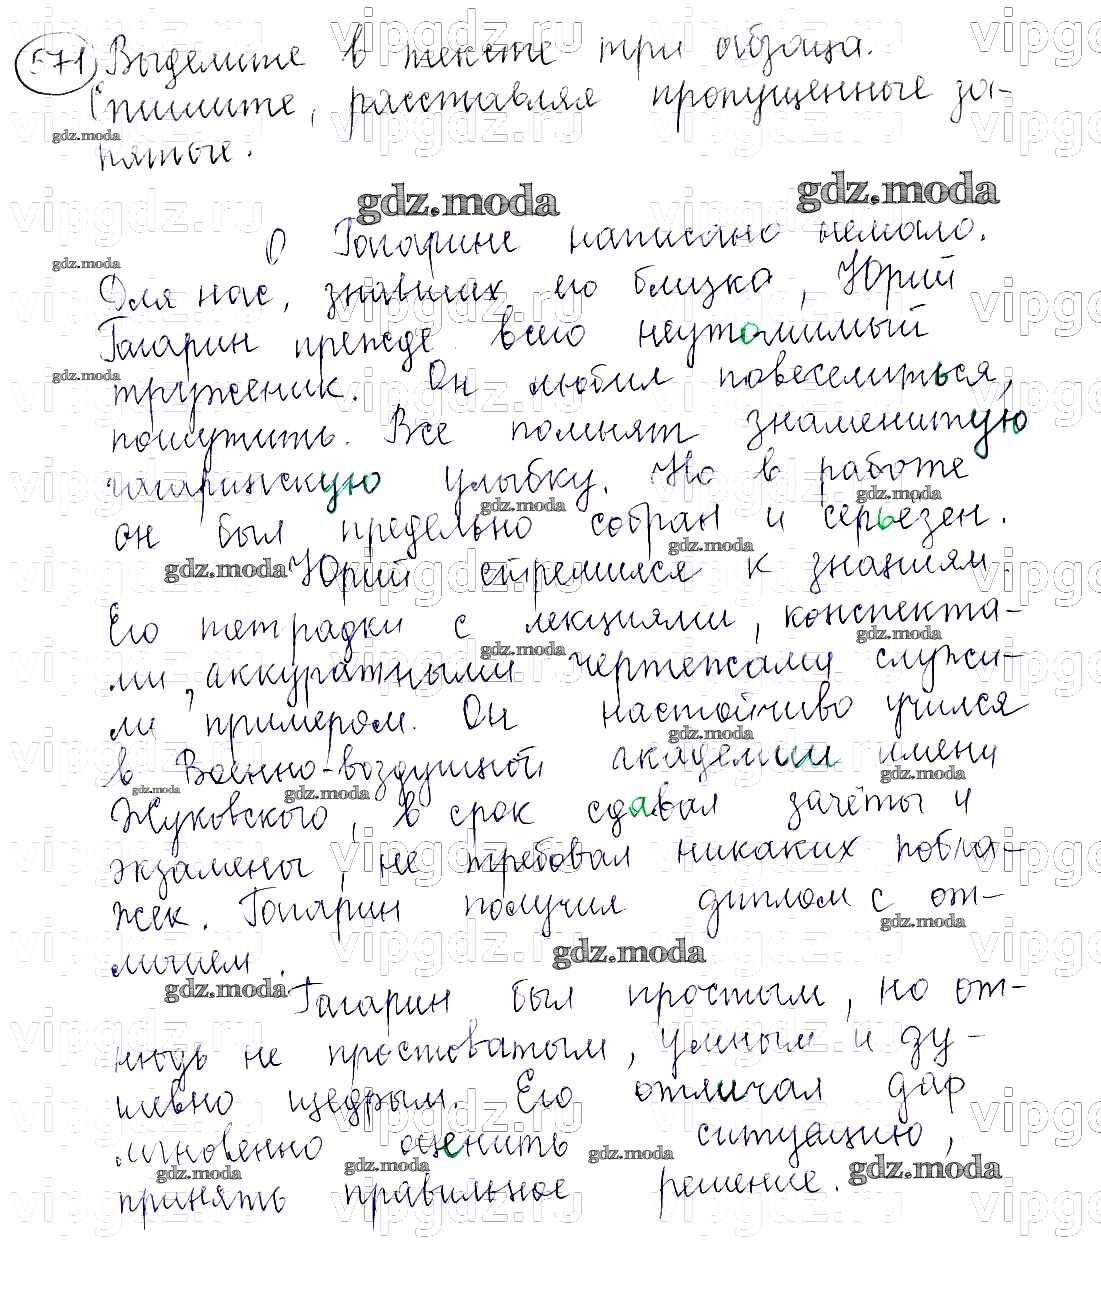 571 Выделите в тексте три абзаца.
Спишите, расставляя пропущенные за-
пятые.
О Гагарине написано немало.
Для нас, знавших его близко, Юрий
Гагарин прежде всего неутомимый
труженик. Он любил повеселиться,
пошутить. Все помнят знаменитую
гагаринскую улыбку. Но в работе
он был предельно собран и серьёзен.
Юрий стремился к знаниям.
Его тетрадки с лекциями, конспекта-
ми, аккуратными чертежами служи-
ли примером. Он настойчиво учился
в Военно-воздушной академии имени
Жуковского, в срок сдавал зачёты и
экзамены, не требовал никаких побла-
жек. Гагарин получил диплом с от-
личием.
Гагарин был простым, но от-
нюдь не простоватым, умным и ду-
шевно щедрым. Его отличал дар
мгновенно оценить ситуацию,
принять правильное решение.